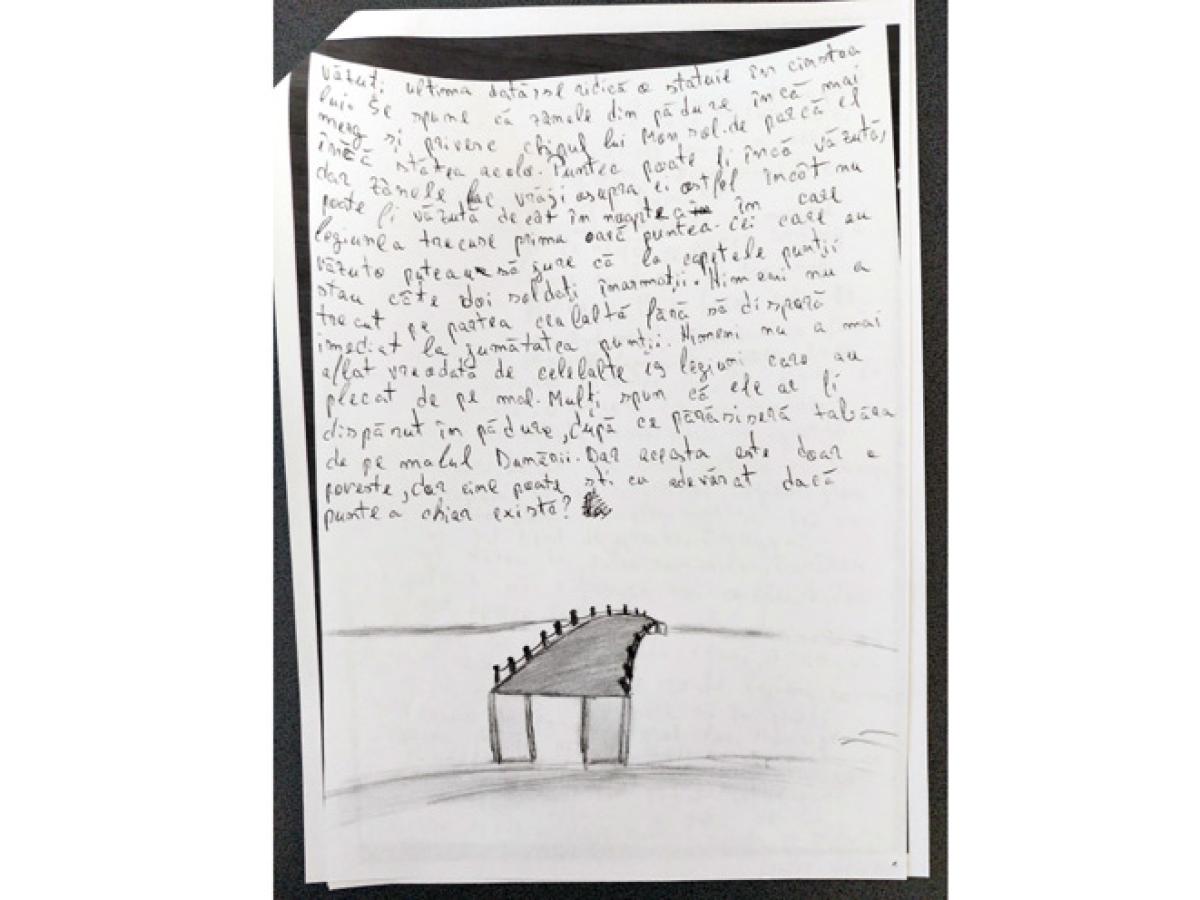 văzuți ultima dată, se ridică o statuie în cinstea
lui. Se spune că zânele din pădure încă mai
merg și privesc chipul lui Monsol de parcă el
încă stătea acolo. Puntea poate fi încă văzută,
dar zânele fac vrăji asupra ei astfel încât nu
poate fi văzută decât în noaptea în care
legiunea trecuse prima oară puntea. Cei care au
văzuto puteau să jure că la capetele punții
stau câte doi soldați înarmații. Nimeni nu a
trecut pe partea cealaltă fără să dispară
imediat la jumătatea punții. Nimeni nu a mai
aflat vreodată de celelalte 19 legiuni care au
plecat de pe mal. Mulți spun că ele ar fi
dispărut în pădure, după ce părăsiseră tabăra
de pe malul Dunării. Dar aceasta este doar o
poveste, dar cine poate ști cu adevărat dacă
puntea chiar există?